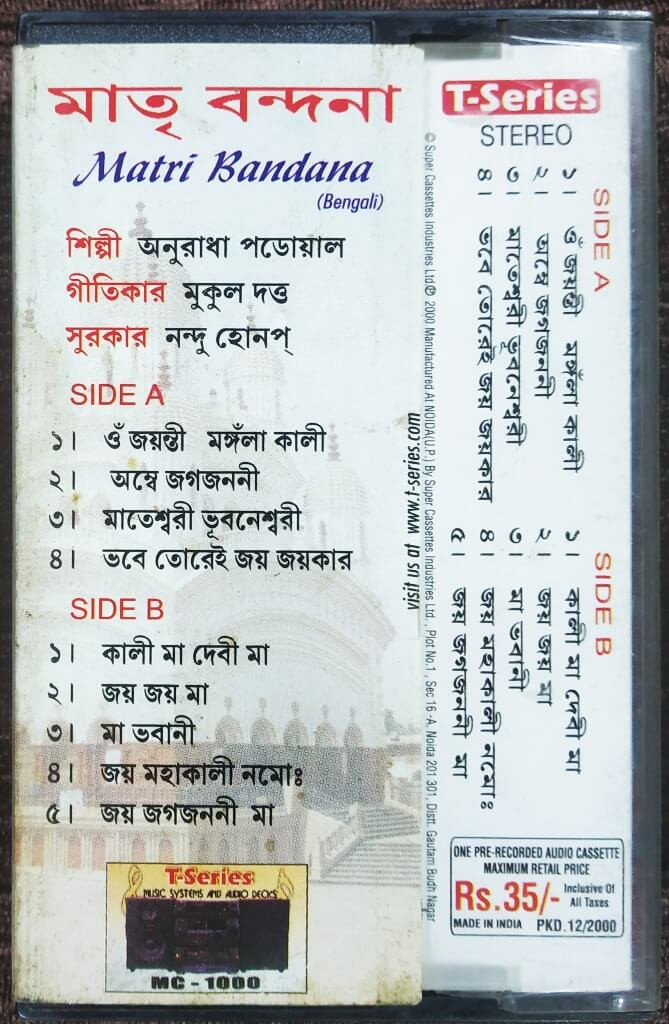 মাতৃ বন্দনা
Matri Bandana
(Bengali)
শিল্পী অনুরাধা পডোয়াল
গীতিকার মুকুল দত্ত
সুরকার নন্দু হোনপ্
SIDE A
১। ওঁ জয়ন্তী মঙ্গঁলা কালী
২। অম্বে জগজননী
৩। মাতেশ্বরী ভূবনেশ্বরী
৪। ভবে তোরেই জয় জয়কার
SIDE B
১। কালী মা দেবী মা
২। জয় জয় মা
৩। মা ভবানী
৪। জয় মহাকালী নমোঃ
৫। জয় জগজননী মা
T-Series
MUSIC SYSTEMS AND AUDIO DECKS
MC - 1000
visit us at www.t-series.com
© Super Cassettes Industries Ltd℗ 2000 Manufactured At NOIDA(U.P.) By Super Cassettes Industries Ltd., Plot No.1, Sec 16 -A, Noida 201 301, Distt. Gautam Budh Nagar
T-Series
STEREO
SIDE A
১। ওঁ জয়ন্তী মঙ্গঁলা কালী
২। অম্বে জগজননী
৩। মাতেশ্বরী ভূবনেশ্বরী
৪। ভবে তোরেই জয় জয়কার
SIDE B
১। কালী মা দেবী মা
২। জয় জয় মা
৩। মা ভবানি
৪। জয় মহাকালী নমোঃ
৫। জয় জগজননী মা
ONE PRE-RECORDED AUDIO CASSETTE
MAXIMUM RETAIL PRICE
Rs.35/- Inclusive Of All Taxes
MADE IN INDIA PKD.12/2000